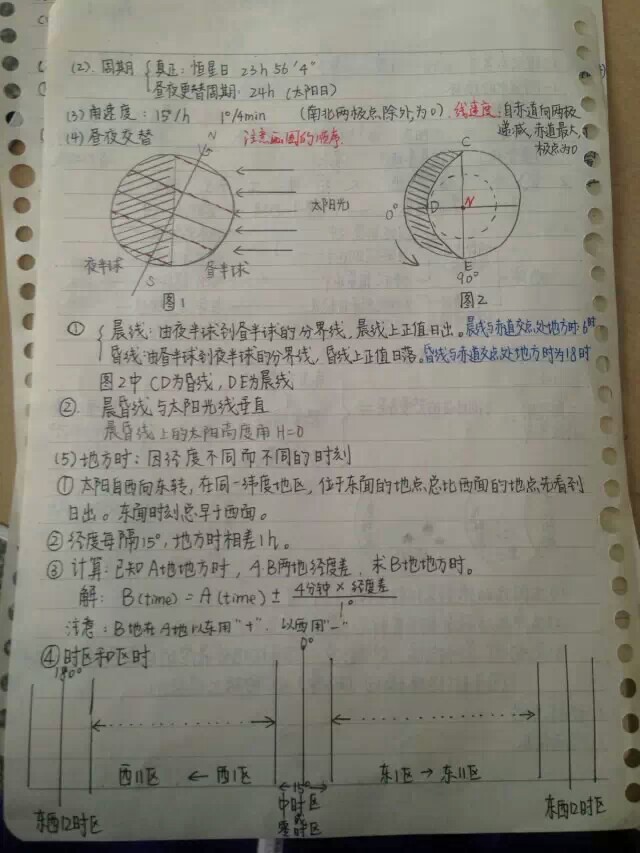 (2). 周期 { 真正: 恒星日 23h 56′4″
昼夜更替周期: 24h (太阳日)
(3) 角速度: 15°/h 1°/4min (南北两极点除外,为0). 线速度: 自赤道向两极
递减,赤道最大,
极点为0
(4) 昼夜交替 注意画图的顺序.
N
太阳光
夜半球 昼半球
S
图1
C
0° D N
E
90°
图2
① { 晨线: 由夜半球到昼半球的分界线, 晨线上正值日出。晨线与赤道交点处地方时:6时
昏线:由昼半球到夜半球的分界线, 昏线上正值日落。昏线与赤道交点处地方时为18时
图2中 CD为昏线, DE为晨线
②. 晨昏线与太阳光线垂直
晨昏线上的太阳高度角 H=0
(5) 地方时: 因经度不同而不同的时刻
① 太阳自西向东转, 在同一纬度地区, 位于东面的地点总比西面的地点先看到
日出。东面时刻总早于西面。
② 经度每隔15°, 地方时相差1h。
③ 计算: 已知A地地方时, A.B两地经度差, 求B地地方时。
解: B(time) = A(time) ± 4分钟 × 经度差
1°
注意: B地在A地以东用"+". 以西用"-"
④ 时区和区时
180° 0°
西11区 ← 西1区 15° 东1区 → 东11区
东西12时区 中时区 东西12时区
或
零时区